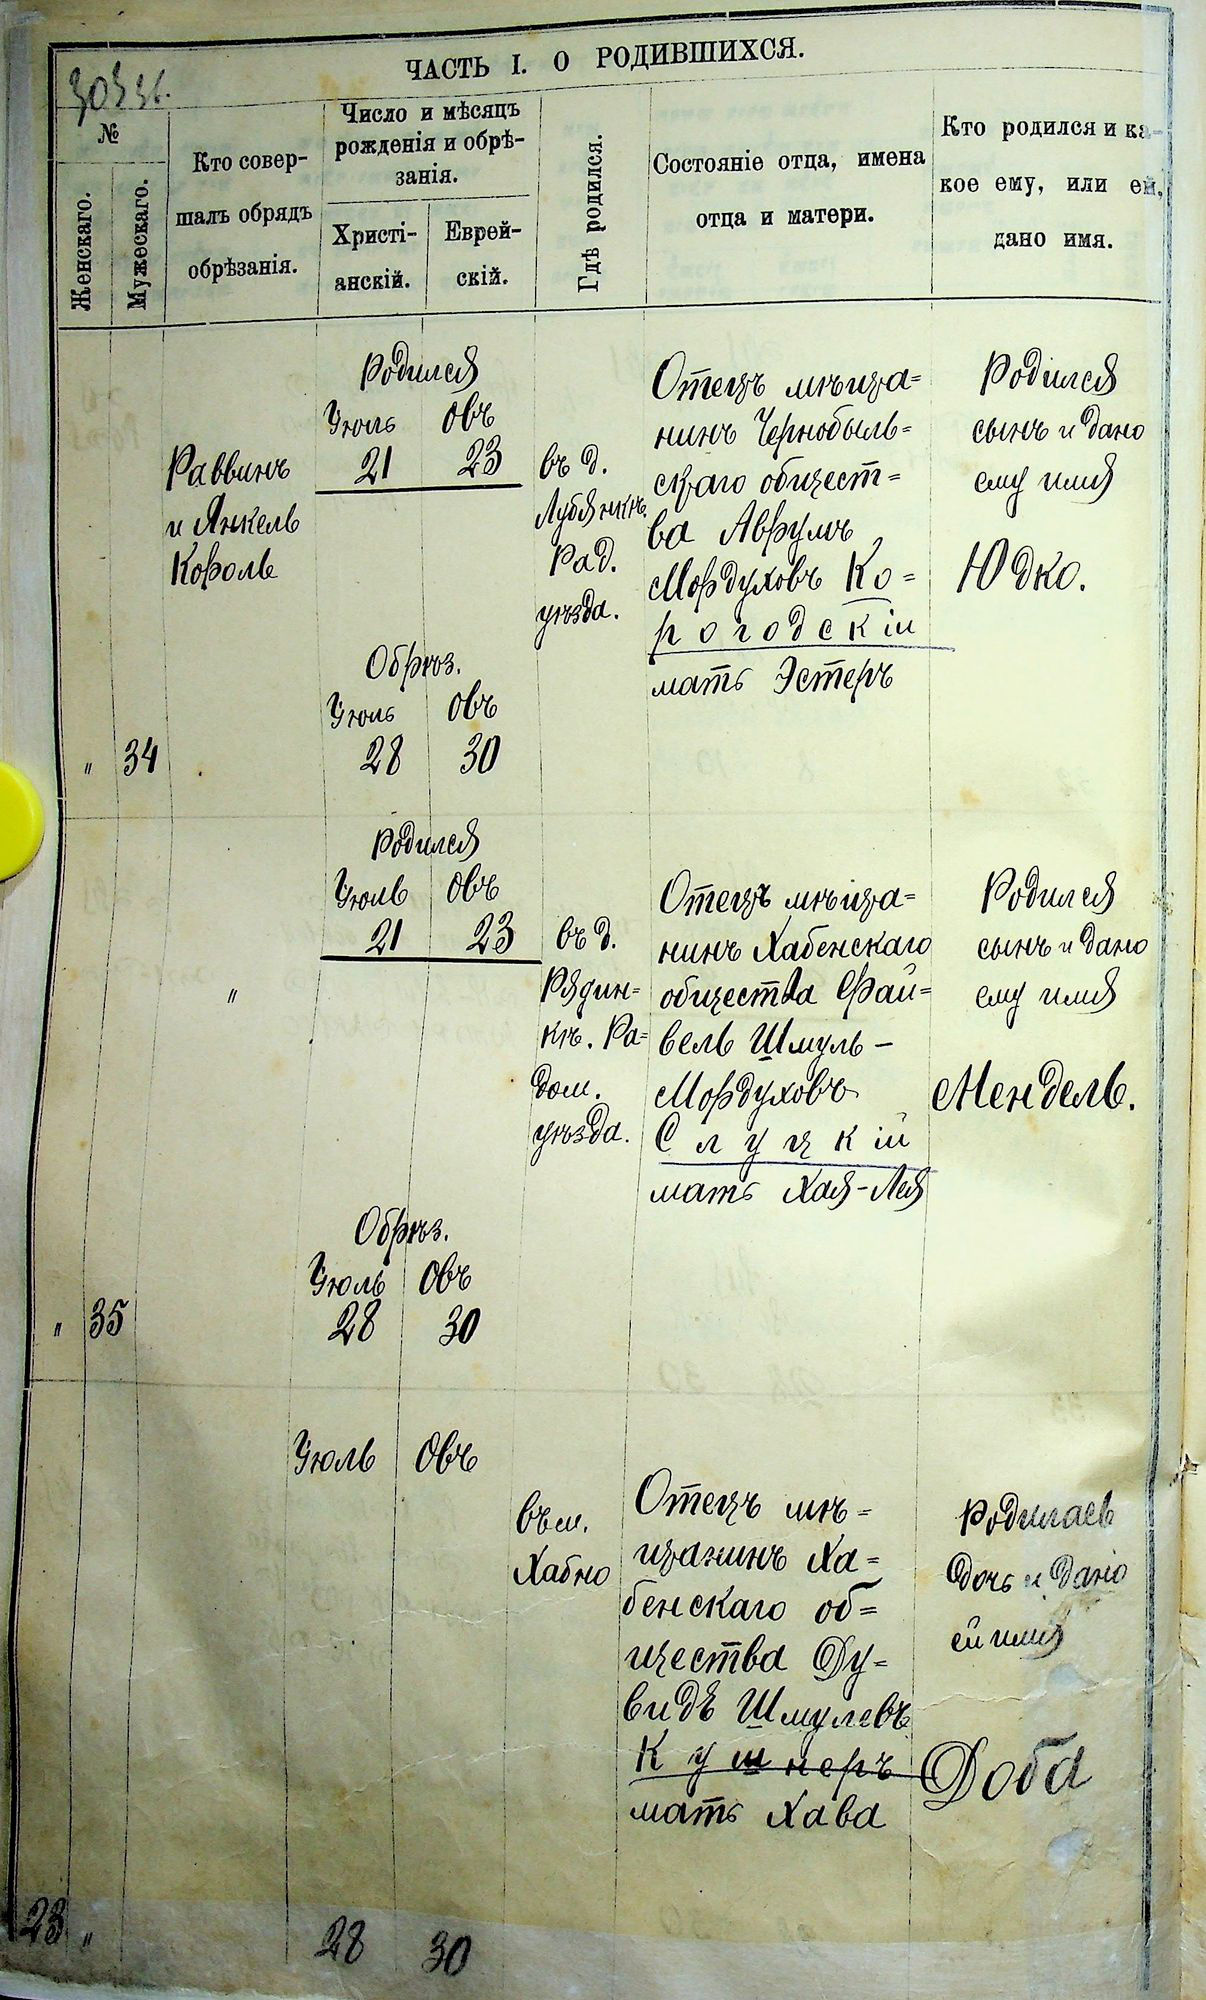 ЧАСТЬ I. О РОДИВШИХСЯ.
№
Женскаго.
Мужескаго.
Кто совер-
шалъ обрядъ
обрѣзанія.
Число и мѣсяцъ
рожденія и обрѣ-
занія.
Христі-
анскій.
Еврей-
скій.
Гдѣ родился.
Состояніе отца, имена
отца и матери.
Кто родился и ка-
кое ему, или ей,
дано имя.
" 34
Раввинъ
и Янкель
Король
Родился
Іюль Овъ
21 23
Обрѣз.
Іюль Овъ
28 30
въ д.
Лубянкѣ
Рад.
уѣзда.
Отецъ мѣща=
нинъ Чернобыль=
скаго общест=
ва Аврумъ
Мордуховъ Ко=
рогодскій
мать Эстеръ
Родился
сынъ и дано
ему имя
Юдко.
" 35
"
Родился
Іюль Овъ
21 23
Обрѣз.
Іюль Овъ
28 30
въ д.
Рядин=
кѣ. Ра=
дом.
уѣзда.
Отецъ мѣща=
нинъ Хабенскаго
общества Фай=
вель Шмуль-
Мордуховъ
Слуцкій
мать Хая-Лея
Родился
сынъ и дано
ему имя
Мендель.
23 "
Іюль Овъ
28 30
въ м.
Хабно
Отецъ мѣ=
щанинъ Ха=
бенскаго об=
щества Ду=
видъ Шмулевъ
Кушнеръ
мать Хава
Родилась
дочь и дано
ей имя
Доба